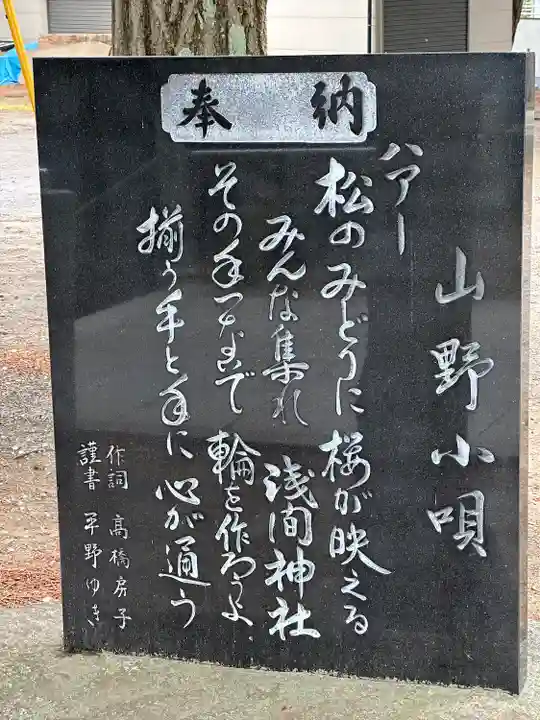 奉納
山野小唄
ハアー
松のみどりに桜が映える
みんな集れ 浅間神社
その手つないで 輪を作ろうよ
揃う手と手に 心が通う
作詞 高橋房子
謹書 平野ゆき